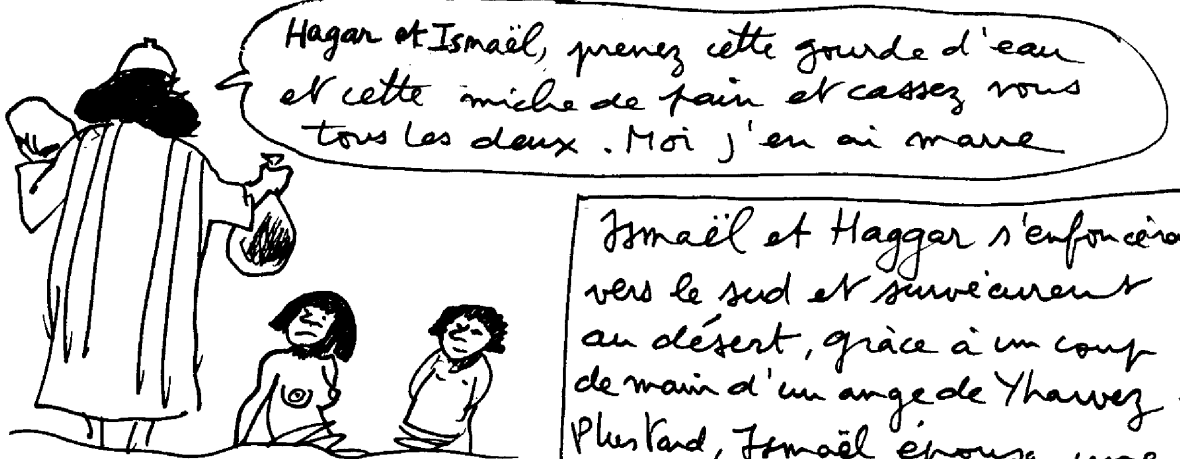 Hagar et Ismaël, prenez cette gourde d'eau
et cette miche de pain et cassez vous
tous les deux. Moi j'en ai marre
Ismaël et Haggar s'enfoncèr
vers le sud et survécurent
au désert, grâce à un coup
de main d'un ange de Yharvez
Plus tard, Ismaël épousa une